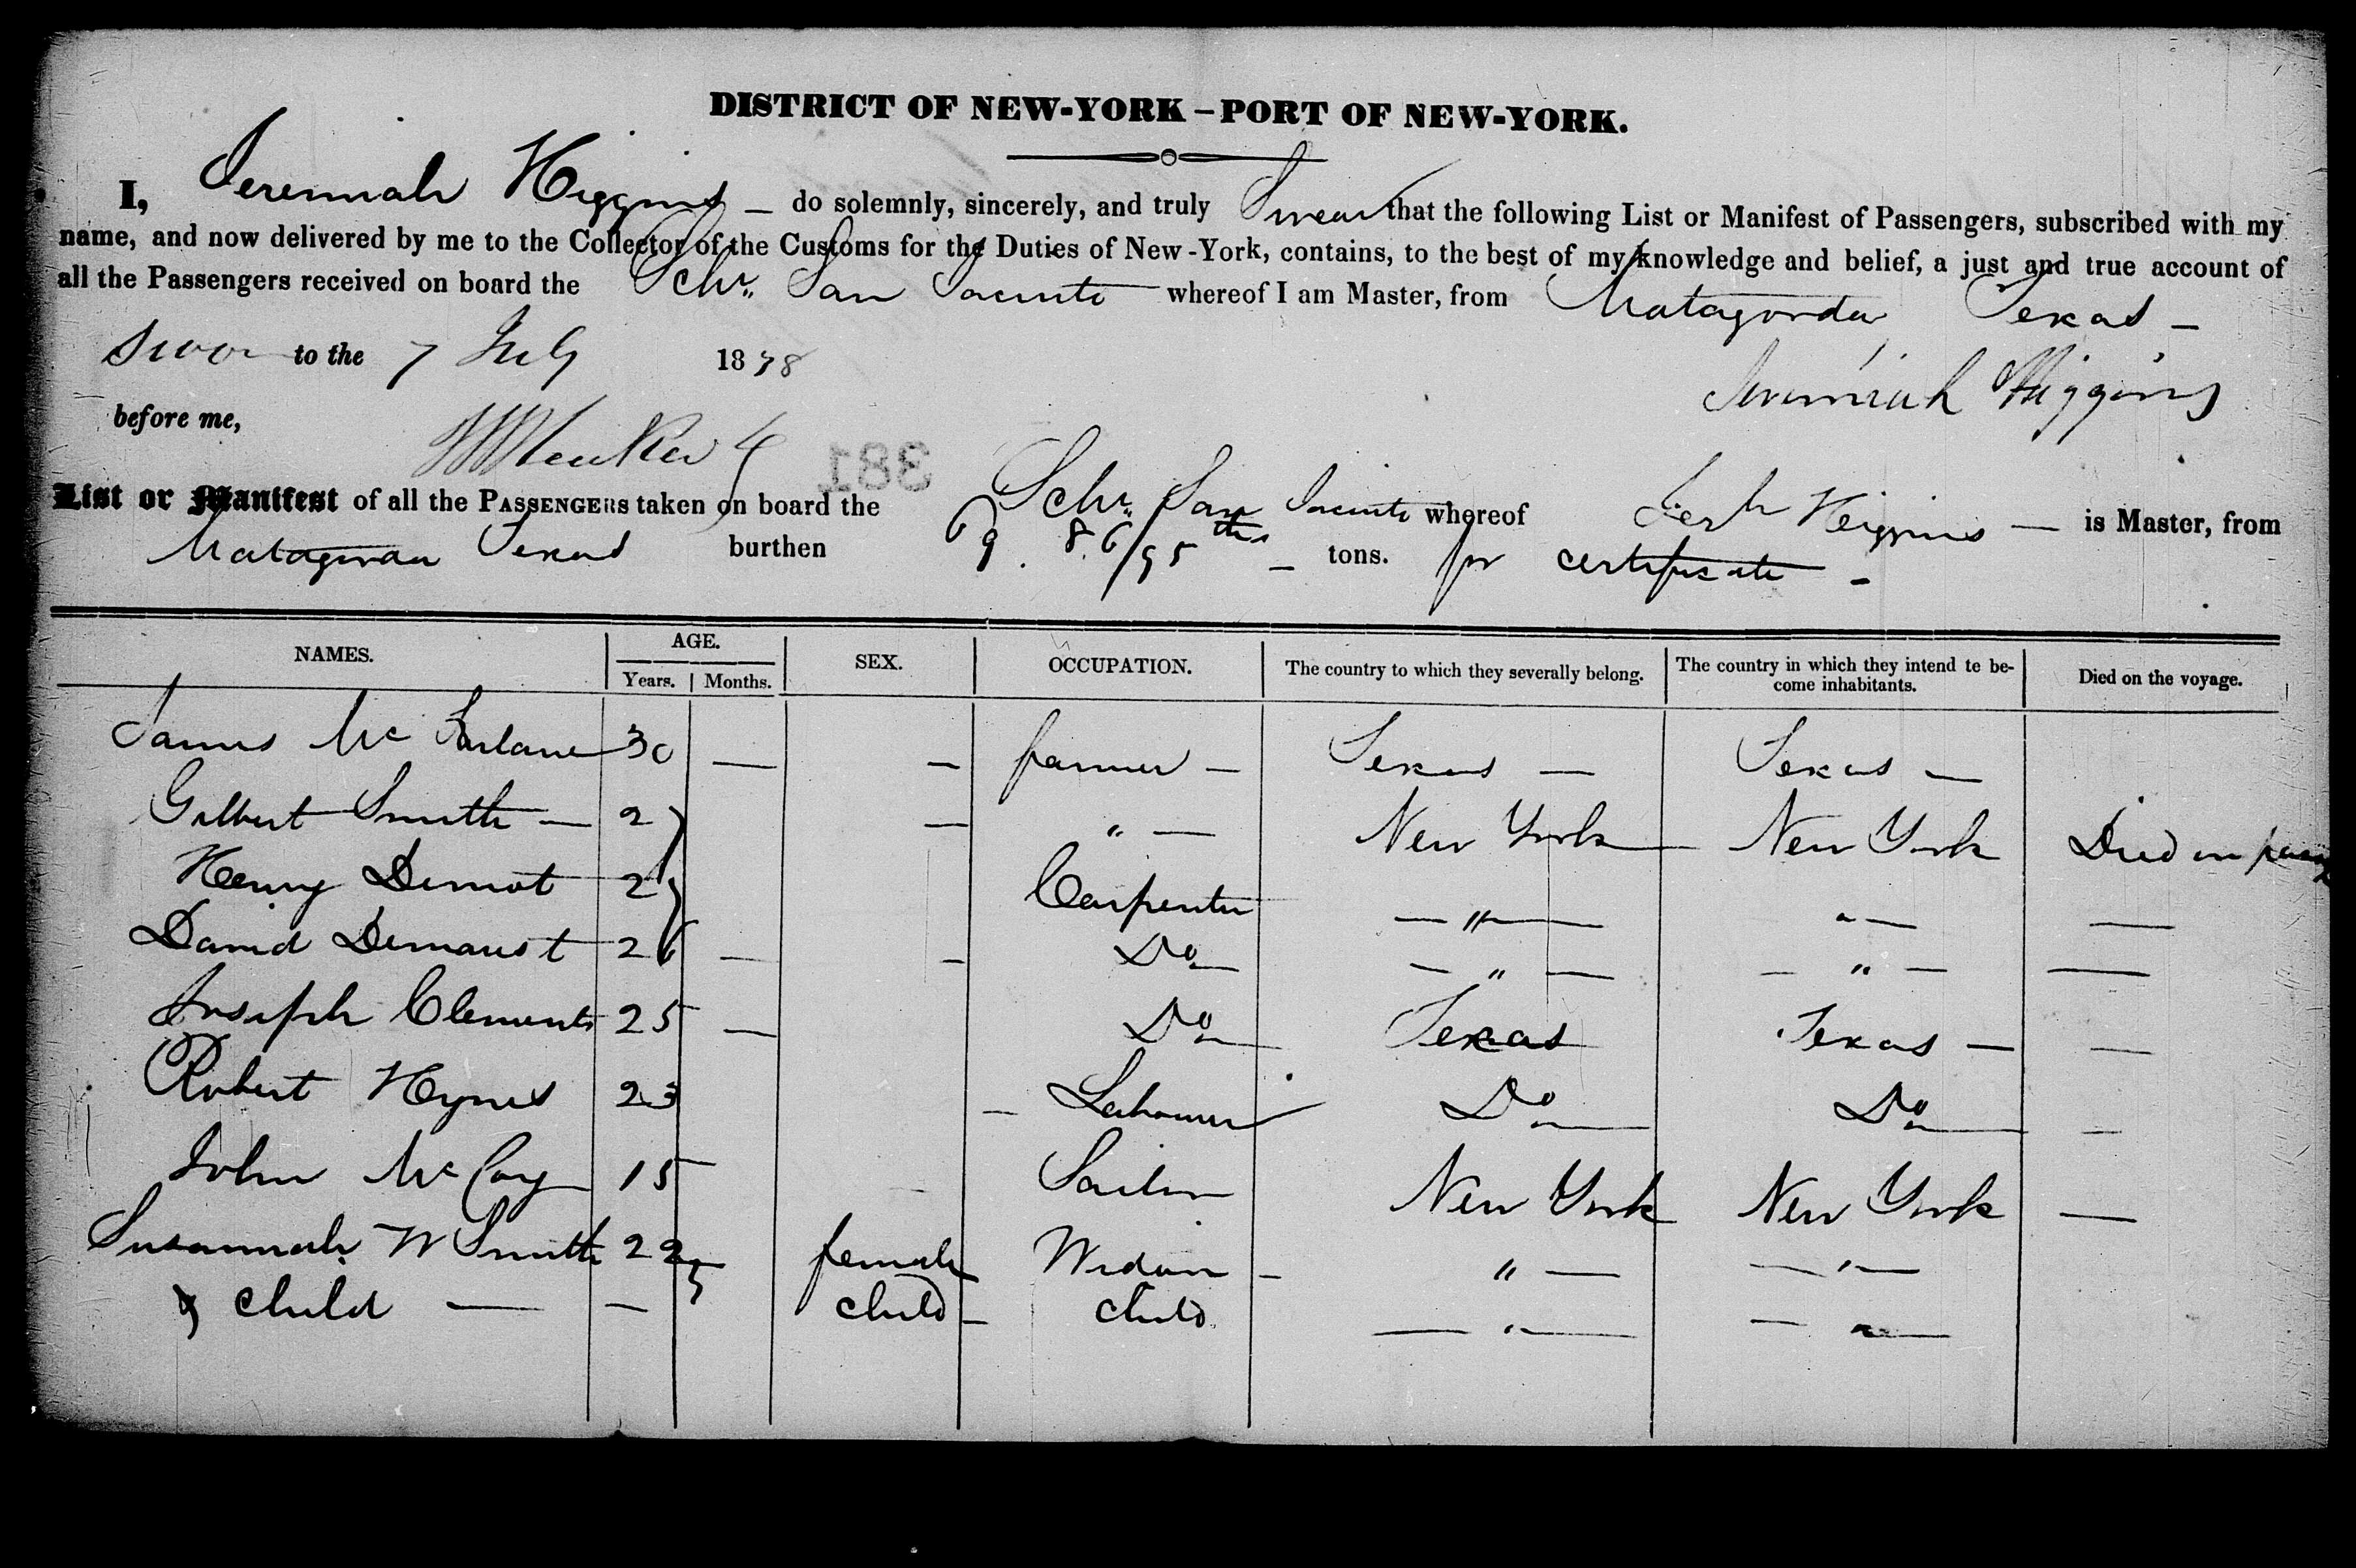 DISTRICT OF NEW-YORK – PORT OF NEW-YORK.
I, Jeremiah Higgins — do solemnly, sincerely, and truly Swear that the following List or Manifest of Passengers, subscribed with my
name, and now delivered by me to the Collector of the Customs for the Duties of New-York, contains, to the best of my knowledge and belief, a just and true account of
all the Passengers received on board the Schr. San Jacinto whereof I am Master, from Matagorda Texas —
Swor to the 7 July 1838
Jeremiah Higgins
before me,
381
List or Manifest of all the PASSENGERS taken on board the Schr. San Jacinto whereof Jerh Higgins — is Master, from
Matagorda Texas burthen 69. 86/95ths — tons. pr certificate –
NAMES. AGE. SEX. OCCUPATION. The country to which they severally belong. The country in which they intend te be-
come inhabitants. Died on the voyage.
Years. Months.
James Mc Farlane 30 — — farmer — Texas — Texas —
Gilbert Smith — 27 — " — New York New York Died on
Henry 27 Carpenter — " — " —
David Demarest 26 — — Do — " — — " — —
Joseph Clements 25 — Do Texas Texas — —
Robert Hynes 23 — Labourer Do Do —
John McCoy 15 Sailor New York New York —
Susannah W Smith 22 female Widow — " — — " —
& child — — child — child — " — — " —